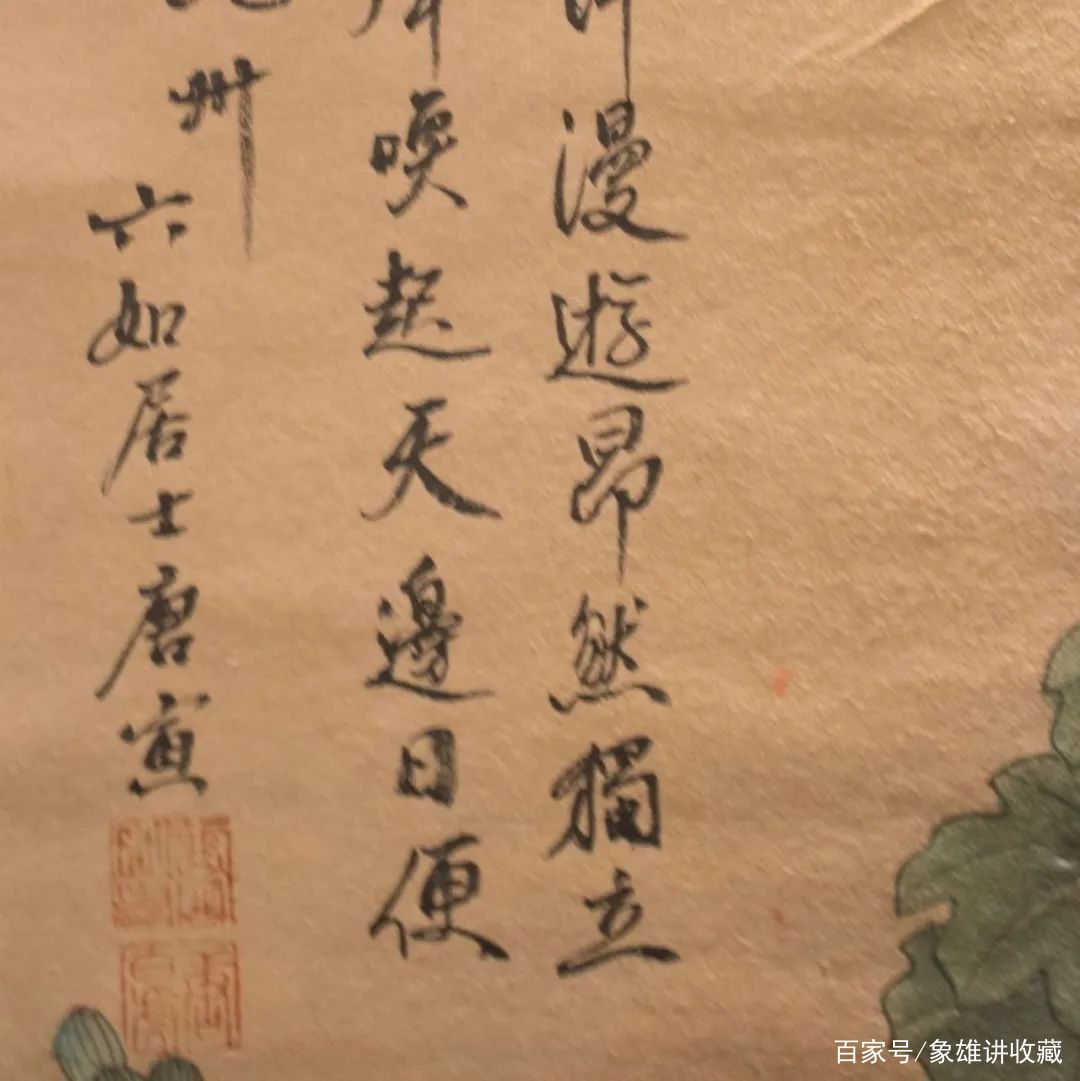 漫遊昂然獨立
喚起天邊日便
州
六如居士唐寅
百家号/象雄讲收藏